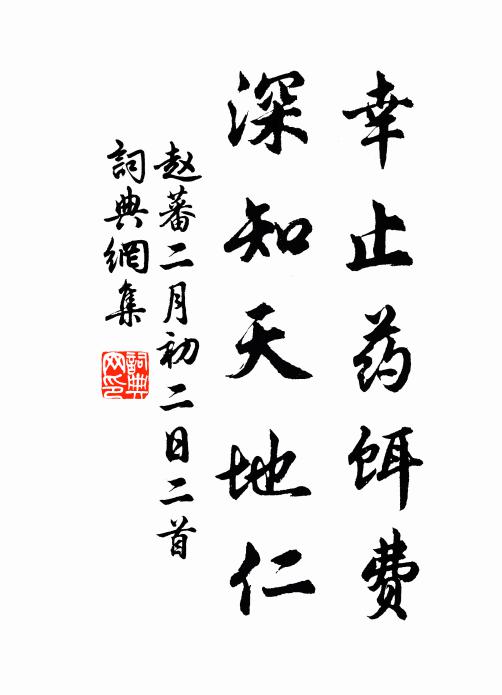 幸止药饵费
深知天地仁
赵蕃二月初二日二首
詞典網集
詞典网印